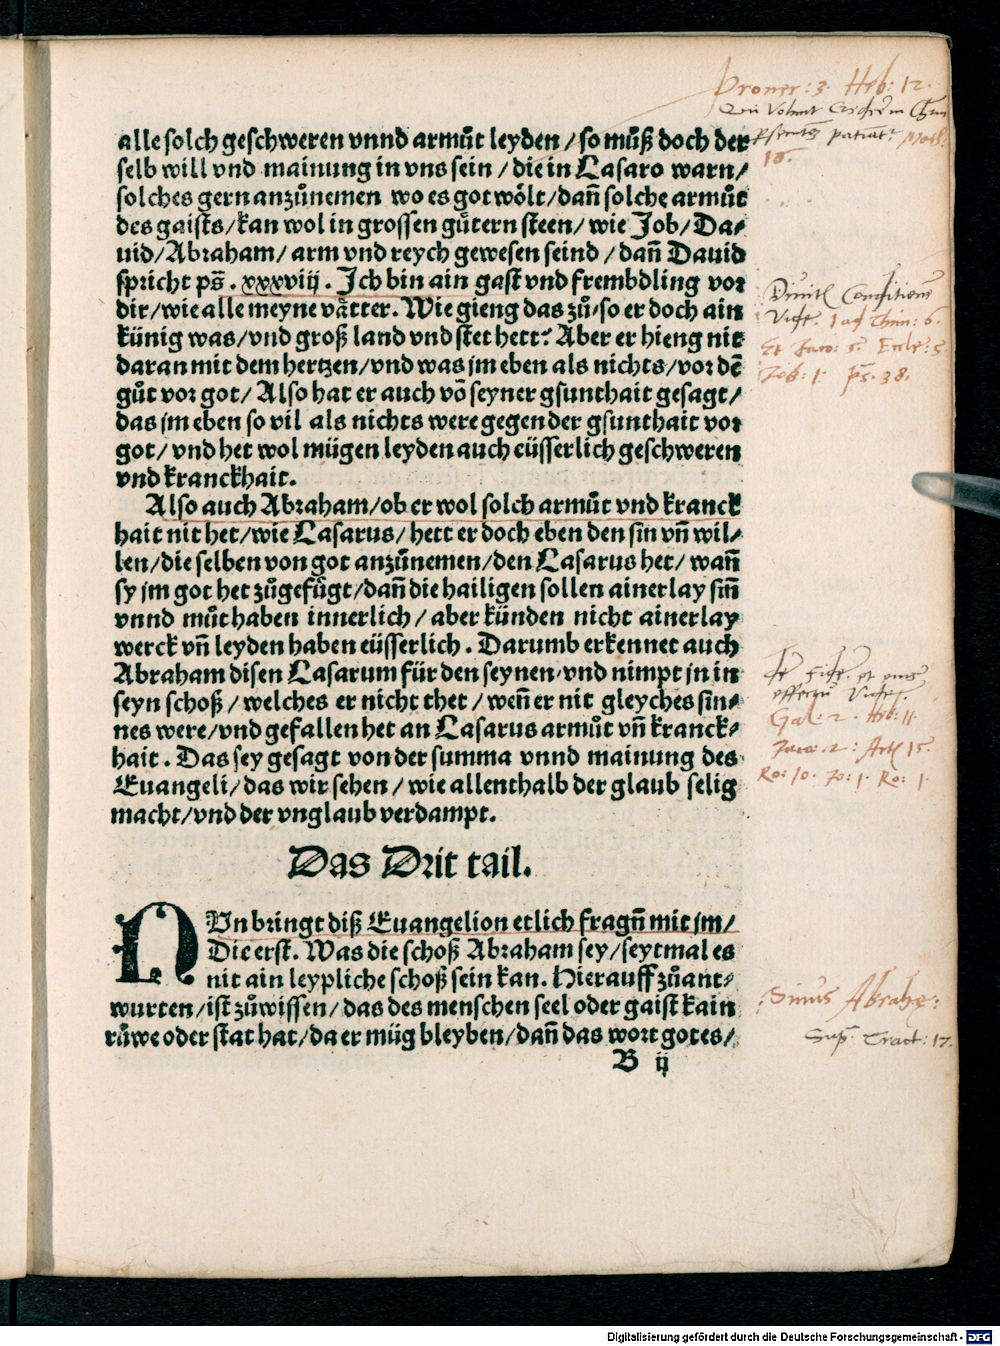 Prouer: 3. Heb: 12.
patiat:
18.
alle solch geschweren vnnd armůt leyden / so můß doch der
selb will vnd mainung in vns sein / die in Lasaro warn /
solches gern anzůnemen wo es got wölt / dañ solche armůt
des gaists / kan wol in grossen gůtern steen / wie Job / Da⸗
uid / Abraham / arm vnd reych gewesen seind / dañ Dauid
spricht ps̄. xxxviij. Ich bin ain gast vnd frembdling vor
dir / wie alle meyne våtter. Wie gieng das zů / so er doch ain
künig was / vnd groß land vnd stet hett? Aber er hieng nit
daran mit dem hertzen / vnd was jm eben als nichts / vor dē
gůt vor got / Also hat er auch vō seyner gsunthait gesagt /
das jm eben so vil als nichts were gegen der gsunthait vor
got / vnd het wol mügen leyden auch eüsserlich geschweren
vnd kranckhait.
Also auch Abraham / ob er wol solch armůt vnd kranck
hait nit het / wie Lasarus / hett er doch eben den sin vñ wil⸗
len / die selben von got anzůnemen / den Lasarus het / wañ
sy jm got het zůgefůgt / dañ die hailigen sollen ainerlay siñ
vnnd můt haben innerlich / aber künden nicht ainerlay
werck vñ leyden haben eüsserlich. Darumb erkennet auch
Abraham disen Lasarum für den seynen / vnd nimpt jn in
seyn schoß / welches er nicht thet / weñ er nit gleyches sin⸗
nes were / vnd gefallen het an Lasarus armůt vñ kranck⸗
hait. Das sey gesagt von der summa vnnd mainung des
Euangeli / das wir sehen / wie allenthalb der glaub selig
macht / vnd der vnglaub verdampt.
Das Drit tail.
NVn bringt diß Euangelion etlich fragñ mit jm /
Die erst. Was die schoß Abraham sey / seytmal es
nit ain leypliche schoß sein kan. Hierauff zůant⸗
wurten / ist zůwissen / das des menschen seel oder gaist kain
růwe oder stat hat / da er müg bleyben / dañ das wort gotes /
B ij
Diuitū Conditionis
1 ad Thim: 6.
Et Jaco: 5. Eccle: 5.
Job: 1. ps. 38.
de fide et eius
Gal: 2. Heb: 11.
Jaco: 2: Act 15.
Ro: 10. Jo: 1. Ro: 1.
Sinus Abrahę:
Sup. Tract: 17.
Digitalisierung gefördert durch die Deutsche Forschungsgemeinschaft - DFG